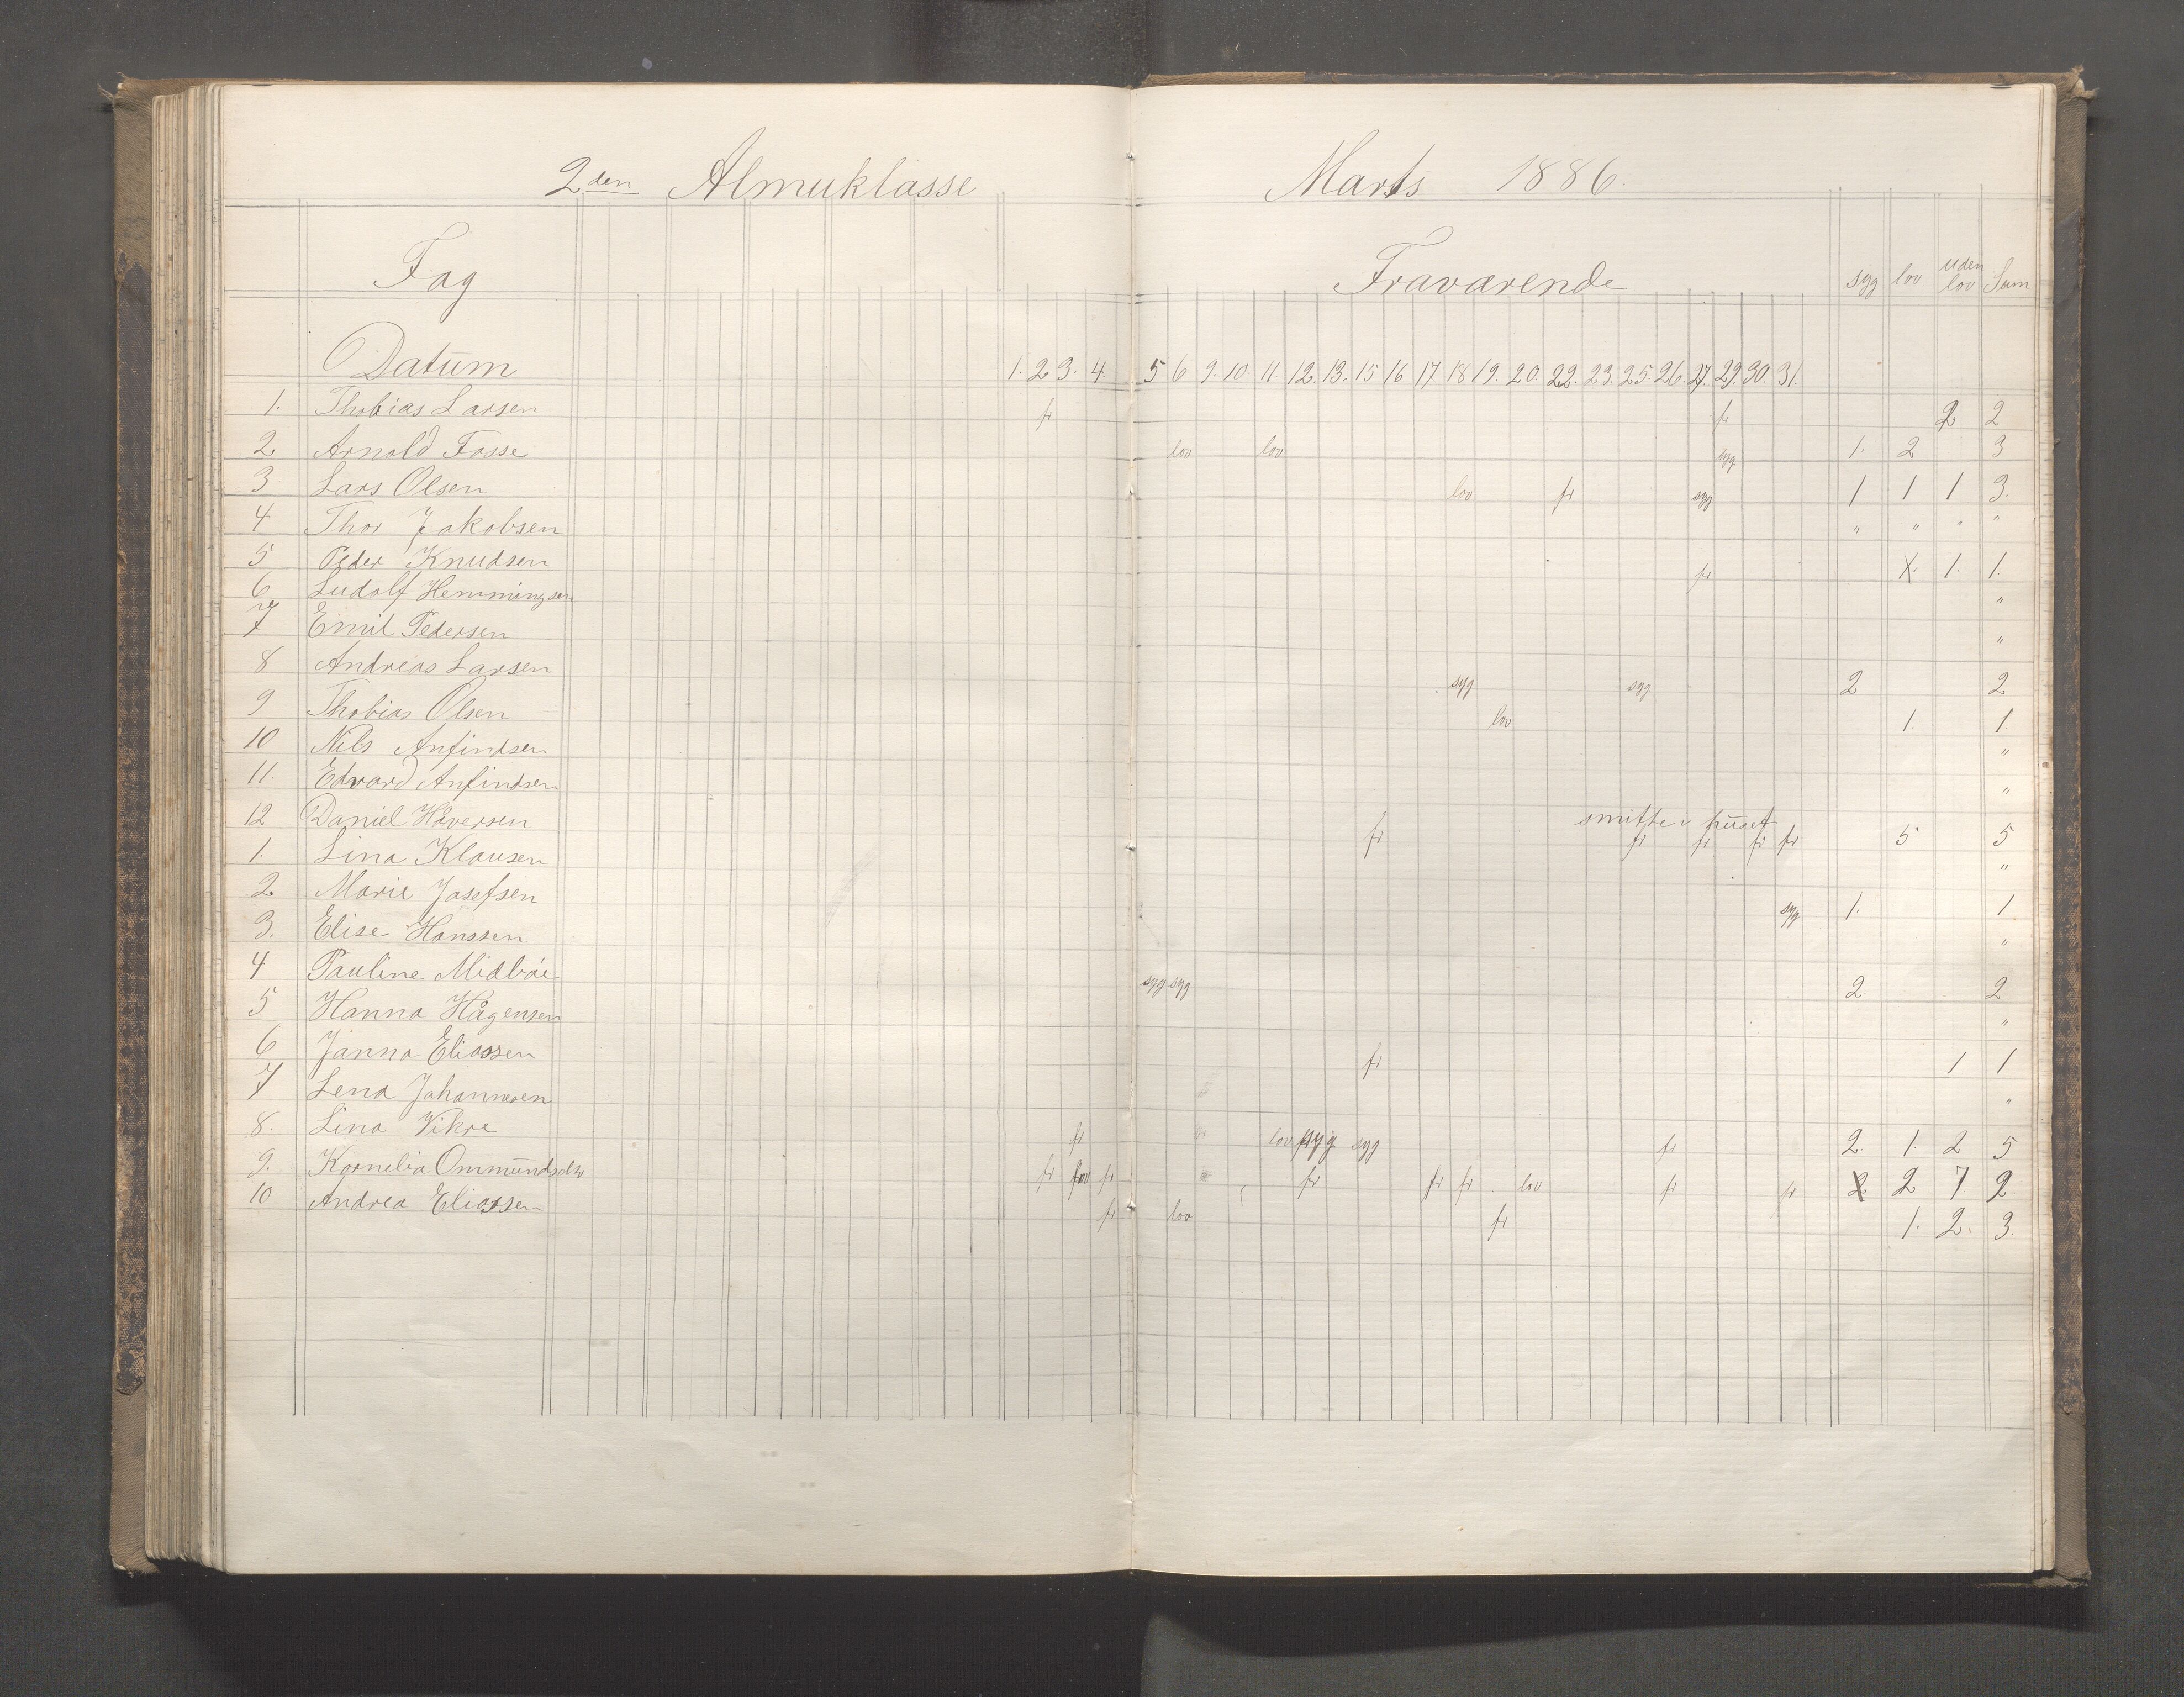 2den Almuklasse Marts 1886.
Fag Fraværende syg lov uden lov Sum
Datum 1. 2 3. 4 5 6 9. 10 11 12. 13. 15 16. 17 18 19. 20. 22. 23. 25. 26. 27. 29. 30. 31.
1. Thobias Larsen fr fr 2 2
2 Arnold Fosse lov lov syg 1. 2 3
3 Lars Olsen lov fr syg 1 1 1 3.
4. Thor Jakobsen " " " "
5 Peder Knudsen fr 1. 1.
6 Ludolf Hemmingsen "
7 Emil Pedersen "
8 Andreas Larsen syg syg 2 2
9 Thobias Olsen lov 1. 1.
10 Nils Anfindsen "
11. Edvard Anfindsen "
12 Daniel Håversen smitte i huset fr fr fr fr fr 5 5
1. Lina Klausen "
2 Marie Josefsen syg 1. 1
3. Elise Hanssen "
4 Pauline Midbøe syg syg 2. 2
5 Hanna Hågensen "
6 Janna Eliassen fr 1 1
7 Lena Johannesen "
8. Lina Vikre fr lov syg syg fr 2. 1. 2 5
9. Kornelia Ommundsen fr lov fr fr fr fr lov fr fr 2 7 9.
10 Andrea Eliassen fr lov fr 1. 2. 3.